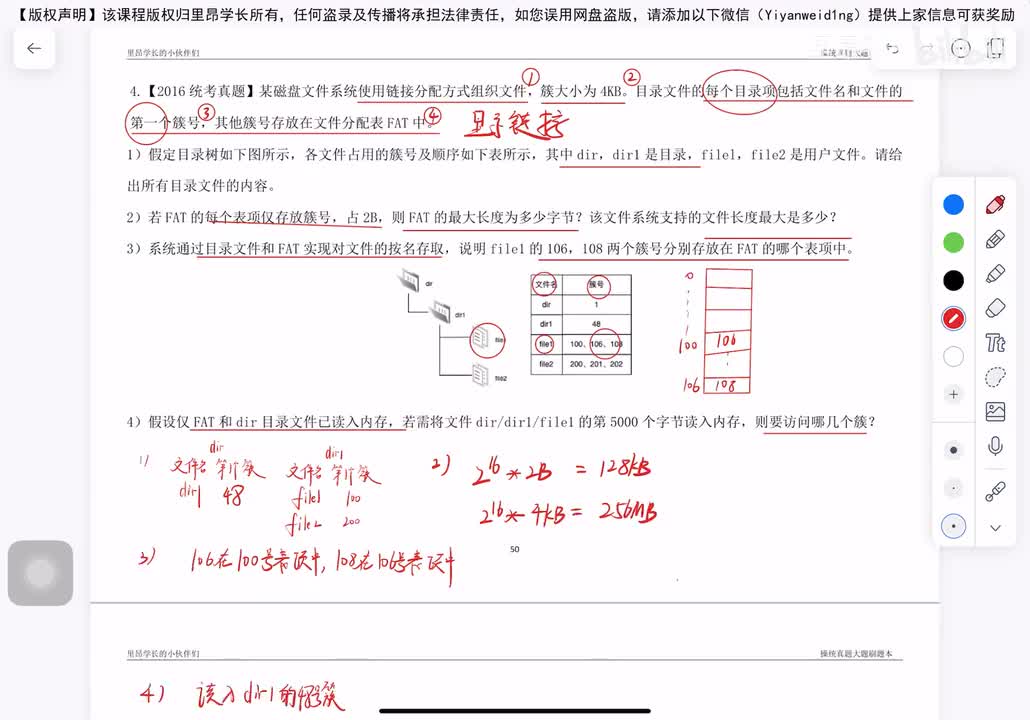 【版权声明】该课程版权归里昂学长所有，任何盗录及传播将承担法律责任，如您误用网盘盗版，请添加以下微信（Yiyanweid1ng）提供上家信息可获奖励
里昂学长的小伙伴们
4.【2016 统考真题】某磁盘文件系统使用链接分配方式组织文件，簇大小为 4KB。目录文件的每个目录项包括文件名和文件的
① ② ③ ④
第一个簇号，其他簇号存放在文件分配表 FAT 中。 显式链接
1）假定目录树如下图所示，各文件占用的簇号及顺序如下表所示，其中 dir，dir1 是目录，file1，file2 是用户文件。请给
出所有目录文件的内容。
2）若 FAT 的每个表项仅存放簇号，占 2B，则 FAT 的最大长度为多少字节？该文件系统支持的文件长度最大是多少？
3）系统通过目录文件和 FAT 实现对文件的按名存取，说明 file1 的 106，108 两个簇号分别存放在 FAT 的哪个表项中。
dir
dir1
file2
文件名 簇号
dir 1
dir1 48
file1 100、106、108
file2 200、201、202
0
1
100 106
106 108
4）假设仅 FAT 和 dir 目录文件已读入内存，若需将文件 dir/dir1/file1 的第 5000 个字节读入内存，则要访问哪几个簇？
1) dir
文件名 第1个簇
dir1 48
dir1
文件名 第1个簇
file1 100
file2 200
2) 2^16 * 2B = 128kB
2^16 * 4kB = 256MB
50
3) 106在100号表项中，108在106号表项中
里昂学长的小伙伴们
操统真题大题刷题本
4) 读入dir1的48号簇
Tt